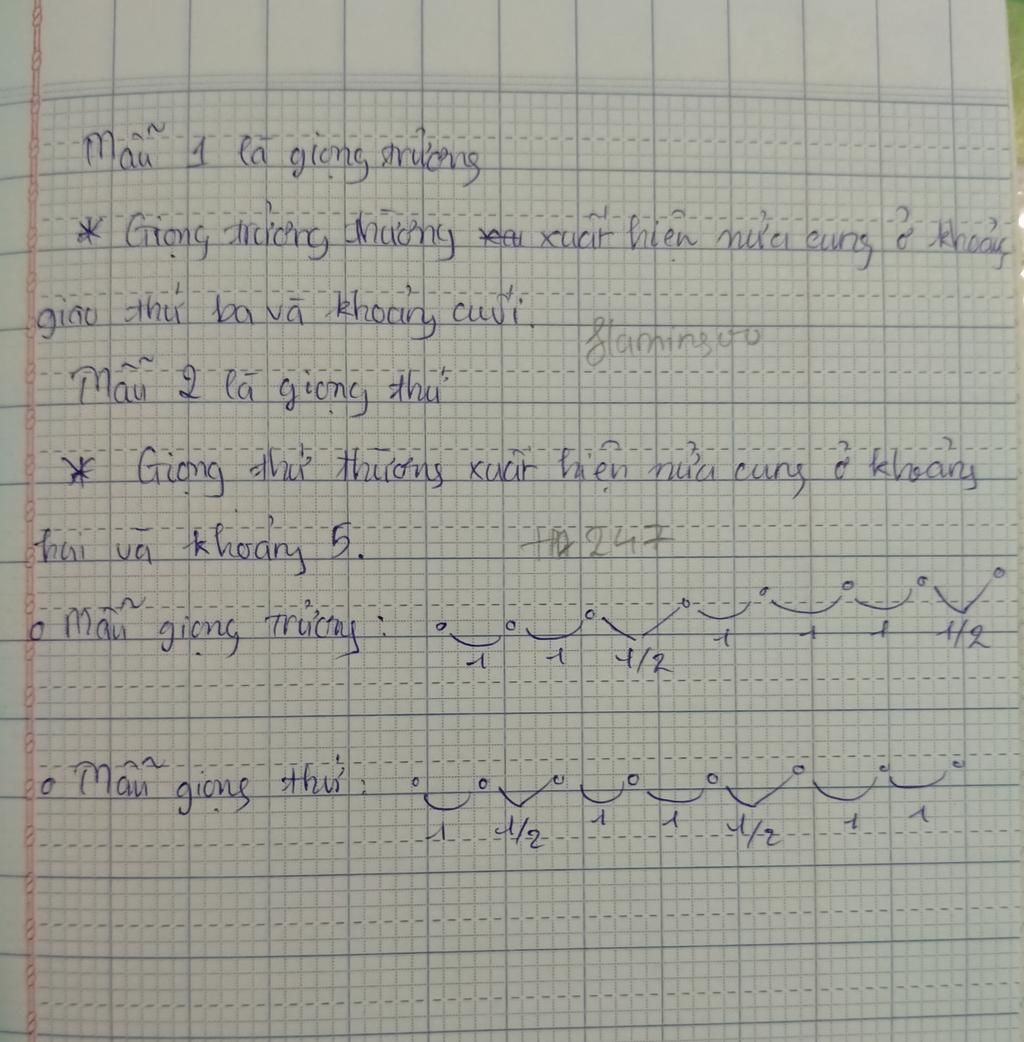 Mẫu 1 là giọng trưởng
* Giọng trưởng thường xuất hiện nửa cung ở khoảng
giao thứ ba và khoảng cuối.
Mẫu 2 là giọng thứ
* Giọng thứ thường xuất hiện nửa cung ở khoảng
hai và khoảng 5.
247
o Mẫu giọng trưởng:
1 1 1/2 1 1 1 1/2
o Mẫu giọng thứ:
1 1/2 1 1 1/2 1 1